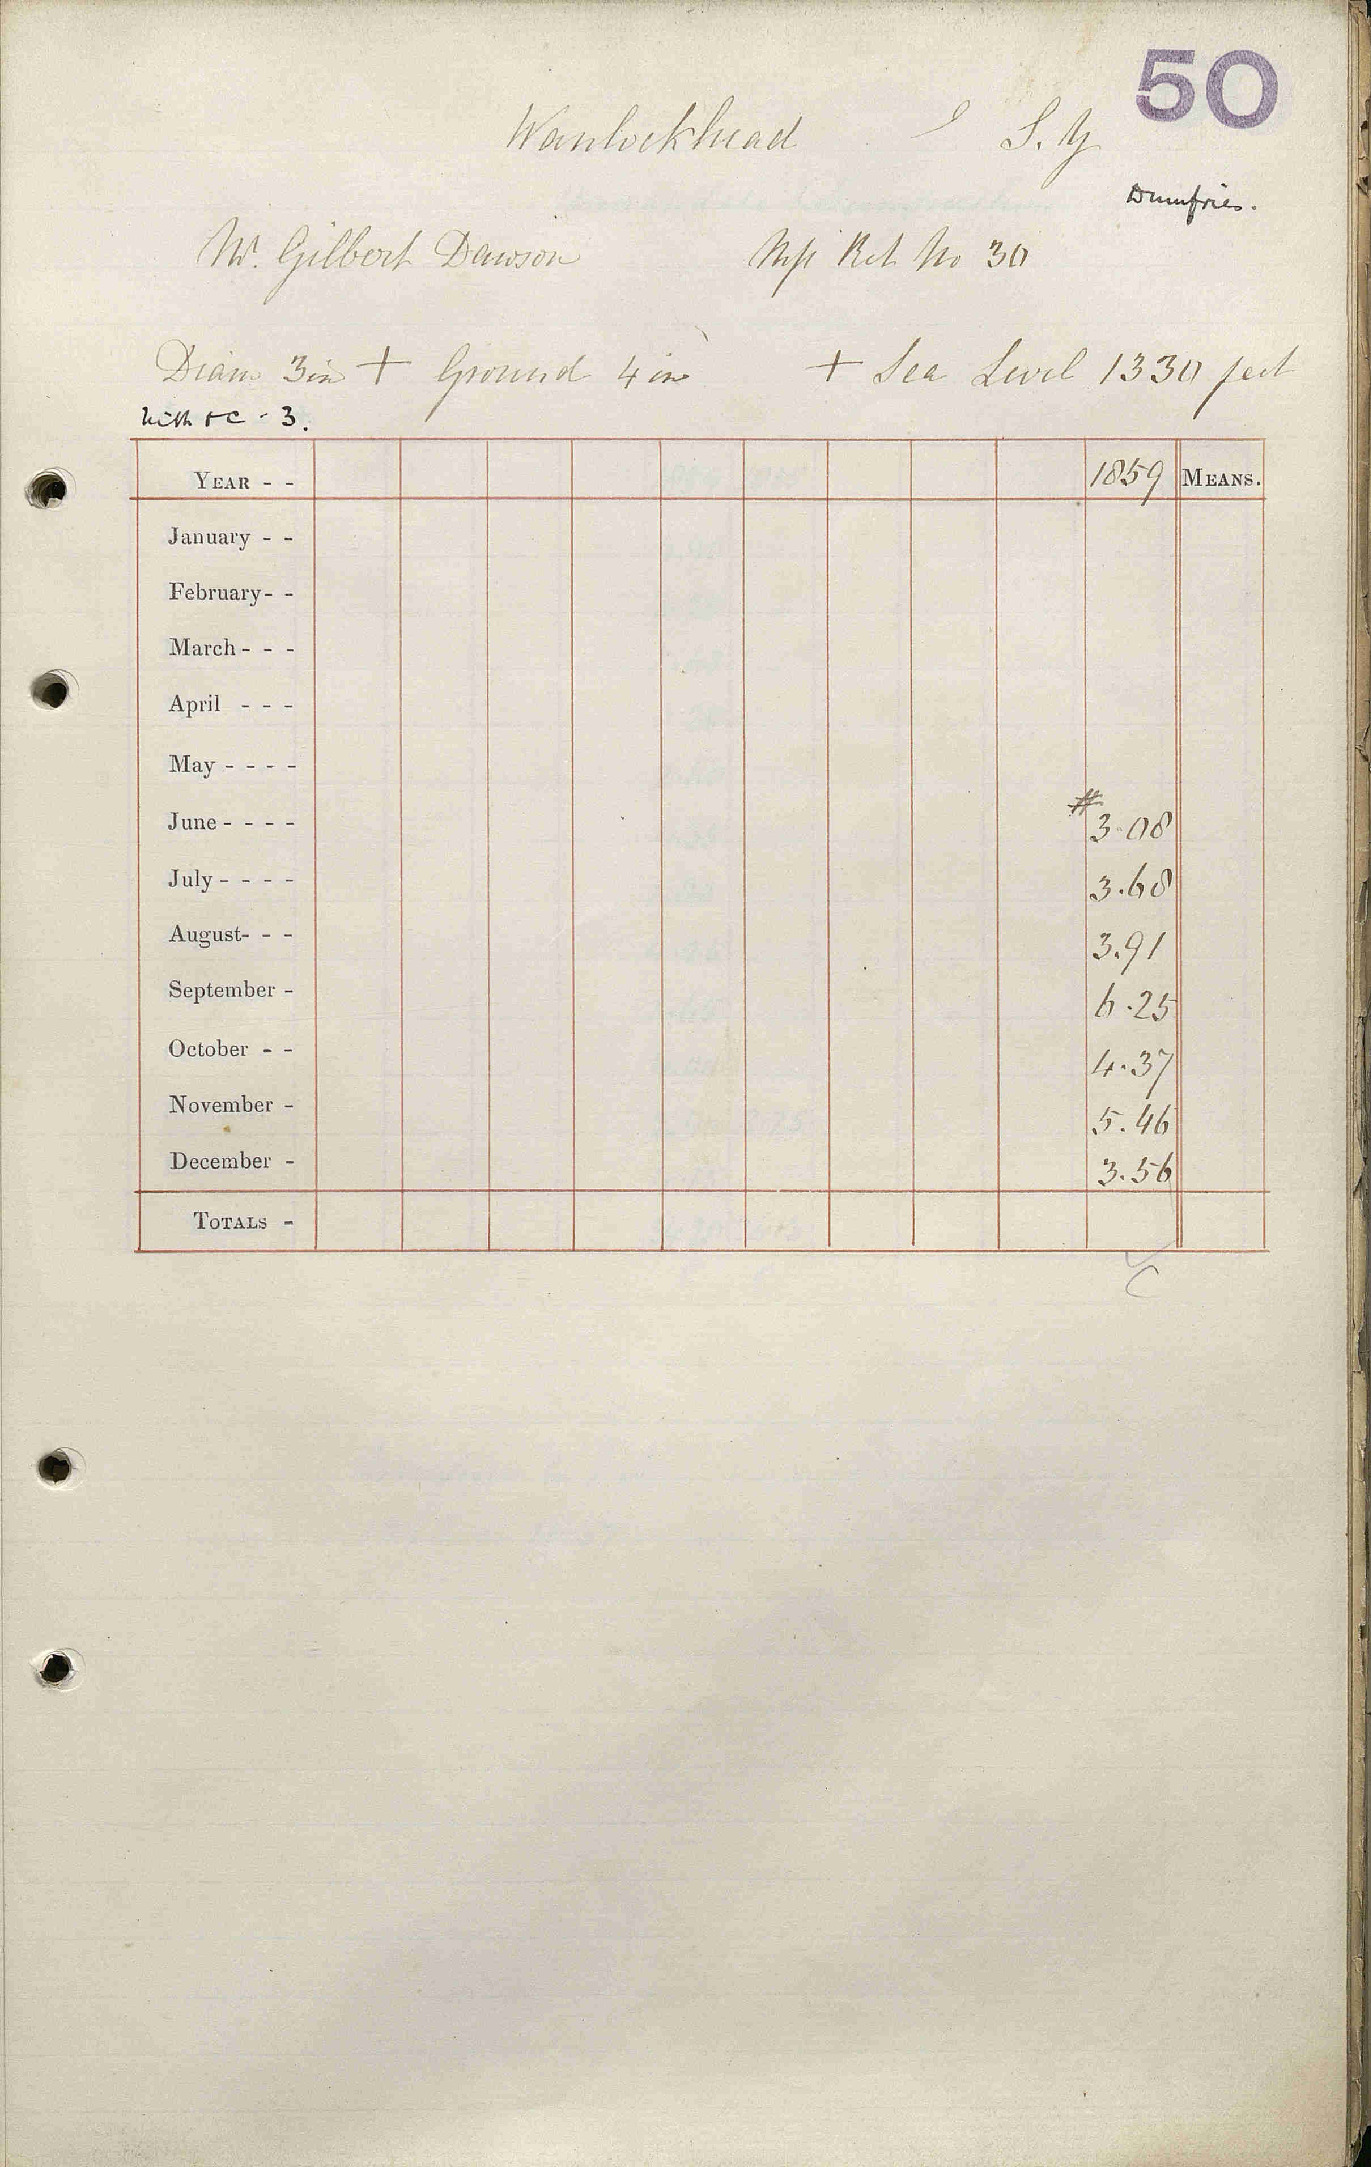 50
Wanlockhead
Dumfries.
W. Gilbert Dawson Ret No 30
Diam 3in + Ground 4in + Sea Level 1330 feet
YEAR - - 1859 MEANS.
January - -
February- -
March - - -
April - - -
May - - - -
June - - - - # 3.08
July - - - - 3.68
August- - - 3.91
September - 6.25
October - - 4.37
November - 5.46
December - 3.56
TOTALS -